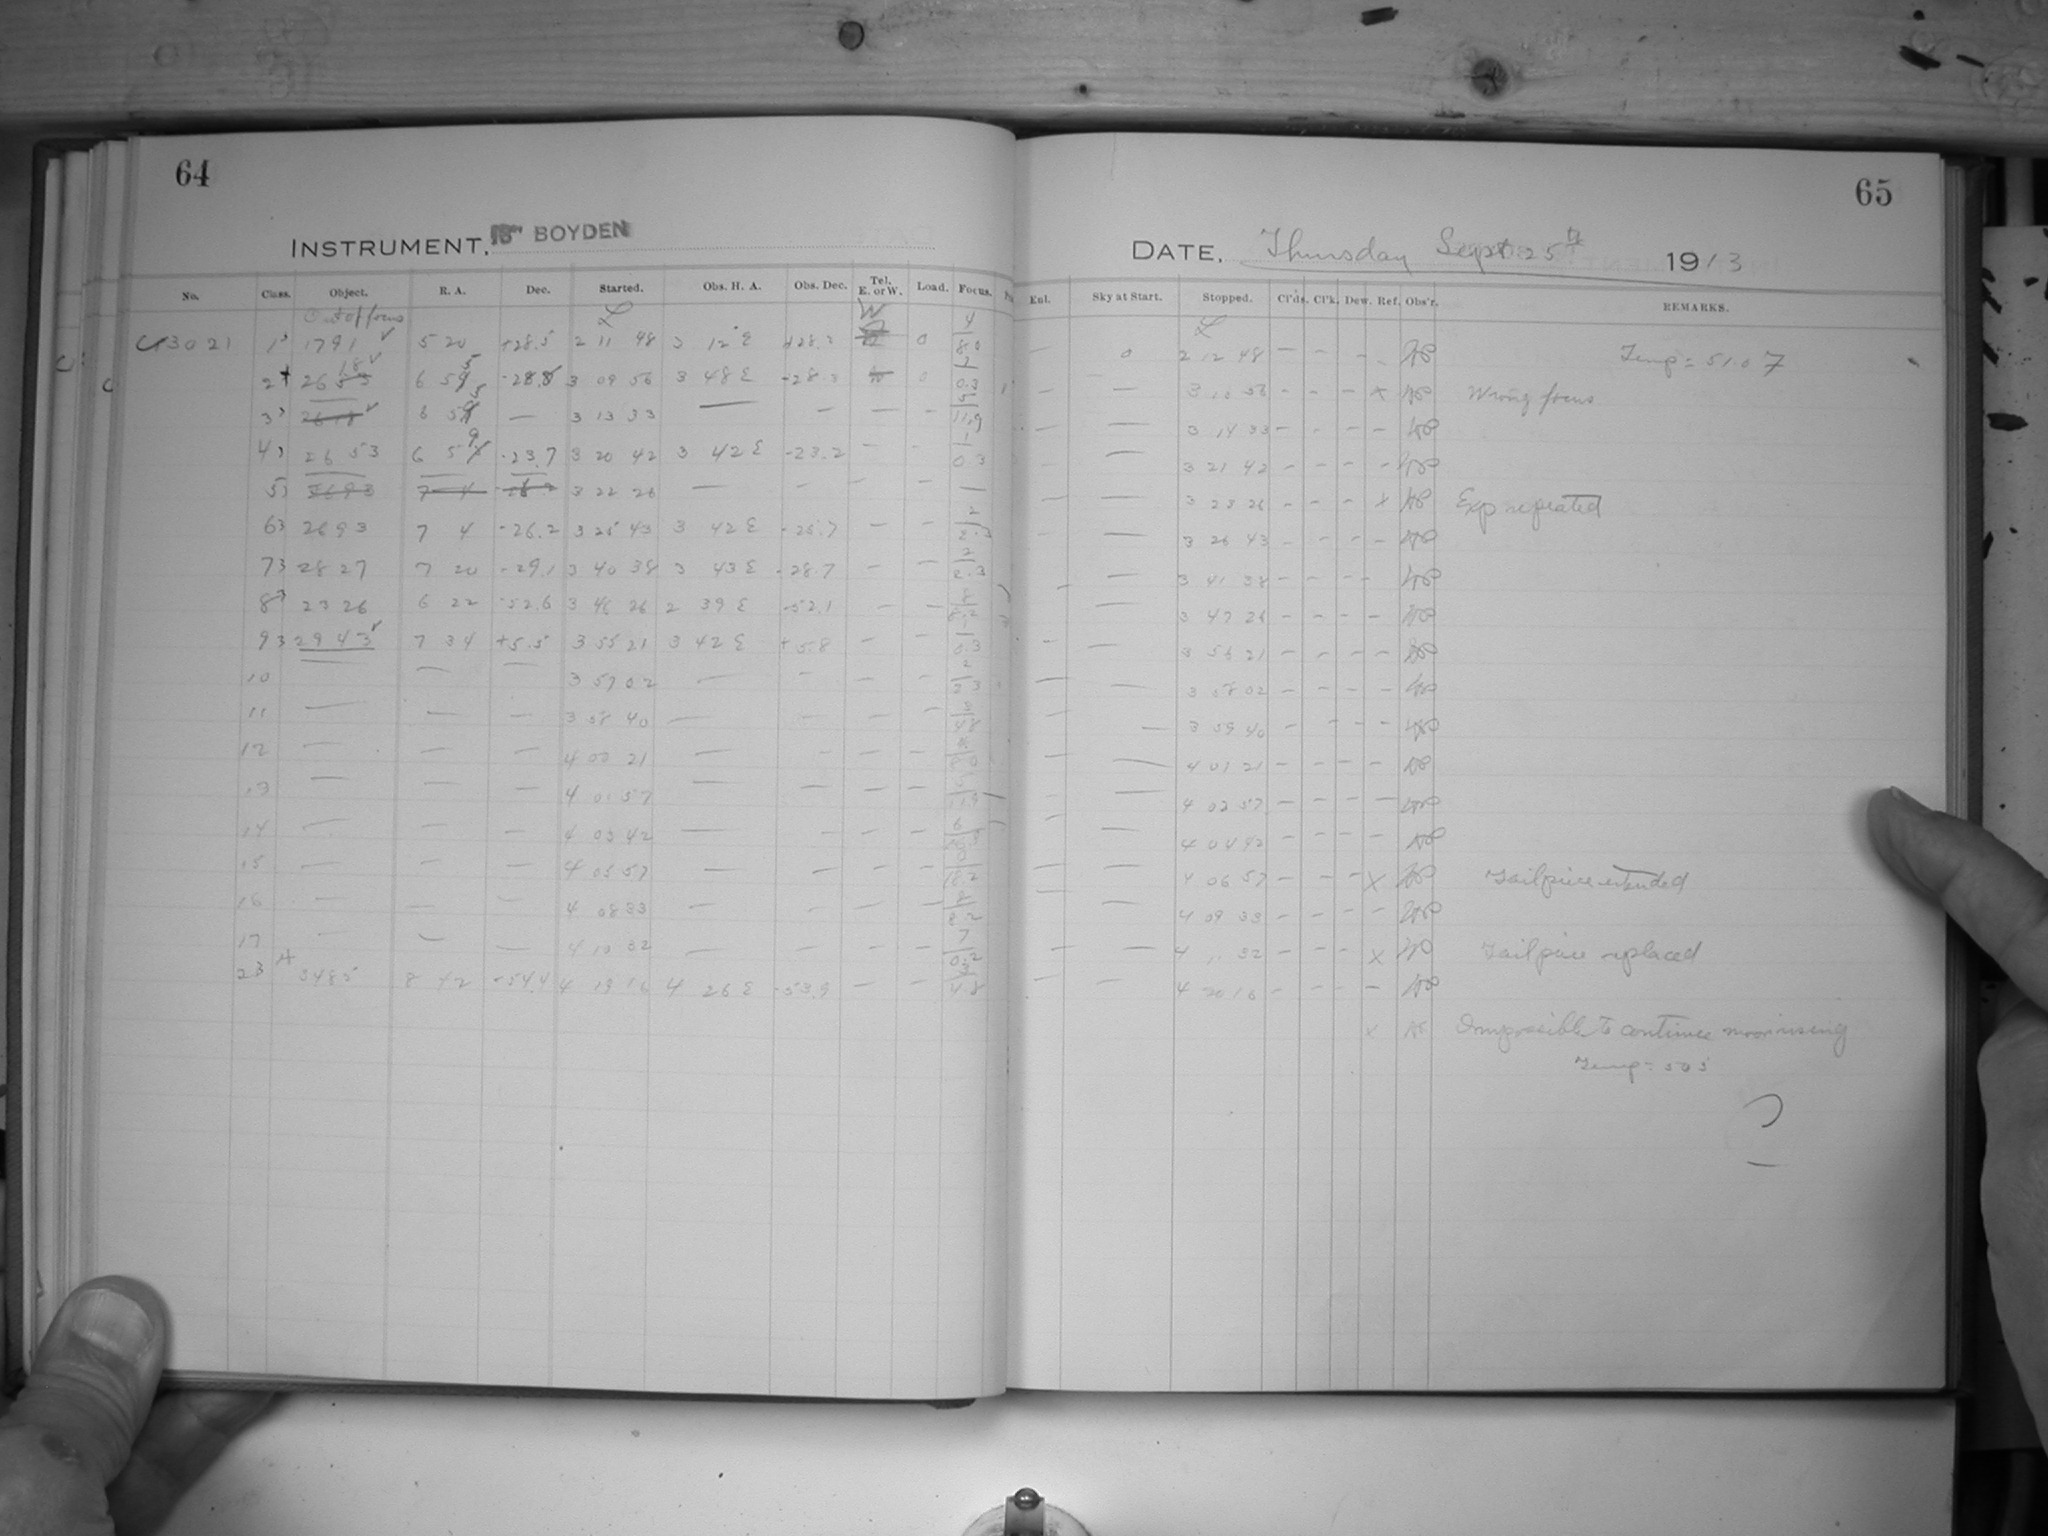 64
INSTRUMENT. 13" BOYDEN
No. Class. Object. R. A. Dec. Started. Obs. H. A. Obs. Dec. Tel. E. or W. Load. Focus.
Out of focus L W
1 1791 5 20 +28.5 2 11 48 3 12 E +28.2 0
2 26 18 6 59 -28.8 3 09 56 3 48 E -28.3 0 0.3
3 2618 6 58 — 3 13 33 — — — — 11.9
4 26 53 6 59 -23.7 3 20 42 3 42 E -23.2 — — 0.3
5 2693 7 4 3 22 26 — — — — —
6 3 2693 7 4 -26.2 3 25 43 3 42 E -25.7 — —
7 3 2827 7 20 -29.1 3 40 38 3 43 E -28.7 — — 2.3
8 3 2326 6 22 -52.6 3 46 26 2 39 E -52.1 — —
9 3 2943 7 34 +5.5 3 55 21 3 42 E +5.8 — — 0.3
10 — — — 3 57 02 — — — — 2 3
11 — — — 3 58 40 — — — —
12 — — — 4 00 21 — — — —
13 — — — 4 01 57 — — — — 11.9
14 — — — 4 03 42 — — — —
15 — — — 4 05 57 — — — —
16 — — — 4 08 33 — — — — 8.2
17 — — — 4 10 32 — — — — 0.2
23 3485 8 42 -54.4 4 19 16 4 26 E -53.9 — — 4.8
65
DATE, Thursday Sept 25th 1913
Enl. Sky at Start. Stopped. Cl'ds. Cl'k. Dew. Ref. Obs'r. REMARKS.
L
— 0 2 12 48 — — — — Temp = 51.0 7
— 3 10 56 — — — x Wrong focus
— — 3 14 33 — — — —
— 3 21 42 — — — —
— — 3 23 26 — — — x Exp repeated
— 3 26 43 — — — —
— 3 41 38 — — — —
— — 3 47 26 — — — —
— — 3 56 21 — — — —
— — 3 58 02 — — — —
— — 3 59 40 — — — —
— — 4 01 21 — — — —
— — 4 02 57 — — — —
— — 4 04 42 — — — —
— — 4 06 57 — — — x Tailpiece extended
— — 4 09 33 — — — —
— — 4 11 32 — — — x Tailpiece replaced
— — 4 20 16 — — — —
x Impossible to continue moon rising
Temp = 50 5